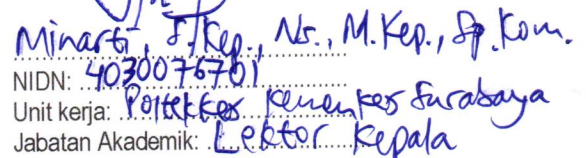 Minarti, S.Kep., Ns., M.Kep., Sp.Kom.
NIDN: 4030076701
Unit kerja: Poltekkes Kemenkes Surabaya
Jabatan Akademik: Lektor Kepala